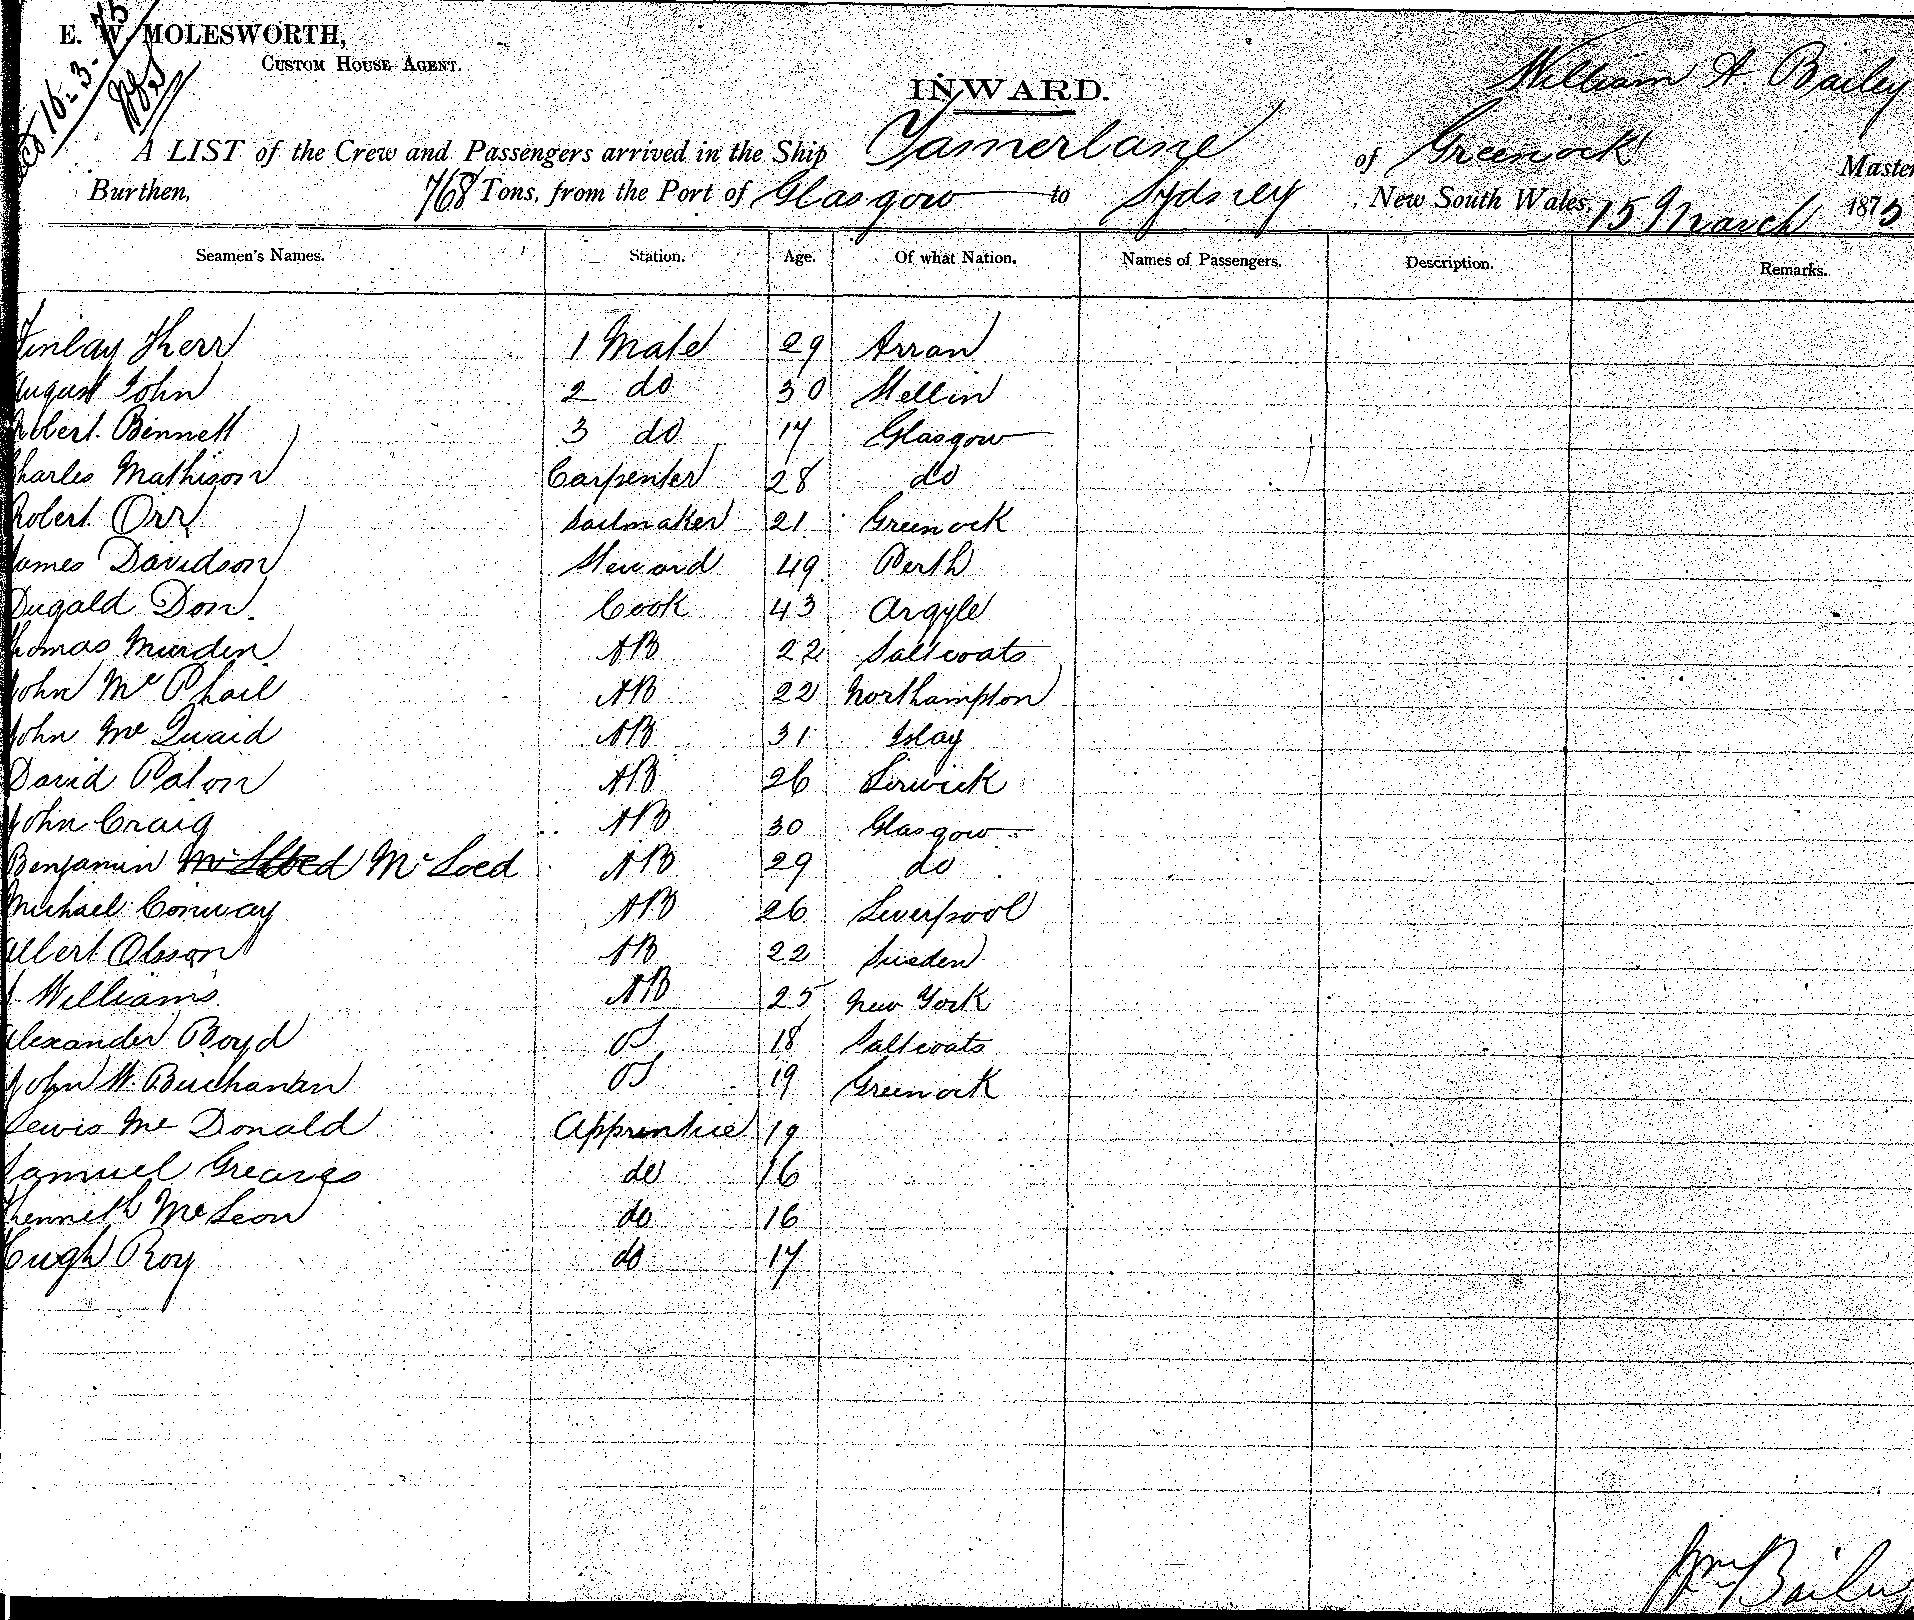 E. W. MOLESWORTH,
CUSTOM HOUSE AGENT.
16-3-75
INWARD.
William A Bailey
A LIST of the Crew and Passengers arrived in the Ship Tamerlane of Greenock Master
Burthen, 768 Tons, from the Port of Glasgow to Sydney New South Wales, 15 March 1875
Seamen's Names. Station. Age. Of what Nation. Names of Passengers. Description. Remarks.
Finlay Kerr 1 Mate 29 Arran
August John 2 do 30 Stellin
Robert Bennett 3 do 17 Glasgow
Charles Mathison Carpenter 28 do
Robert Orr Sailmaker 21 Greenock
James Davidson Steward 49 Perth
Dugald Don Cook 43 Argyle
Thomas Murden AB 22 Saltcoats
John Mc Phail AB 22 Northampton
John Mc Quaid AB 31 Islay
David Paton AB 26 Lerwick
John Craig AB 30 Glasgow
Benjamin Mc Loed AB 29 do
Michael Conway AB 26 Liverpool
Albert Olsson AB 22 Sweden
Williams AB 25 New York
Alexander Boyd OS 18 Saltcoats
John W. Buchanan OS 19 Greenock
Lewis Mc Donald Apprentice 19
Samuel Greaves do 16
Kenneth Mc Leon do 16
Hugh Roy do 17
Wm Bailey